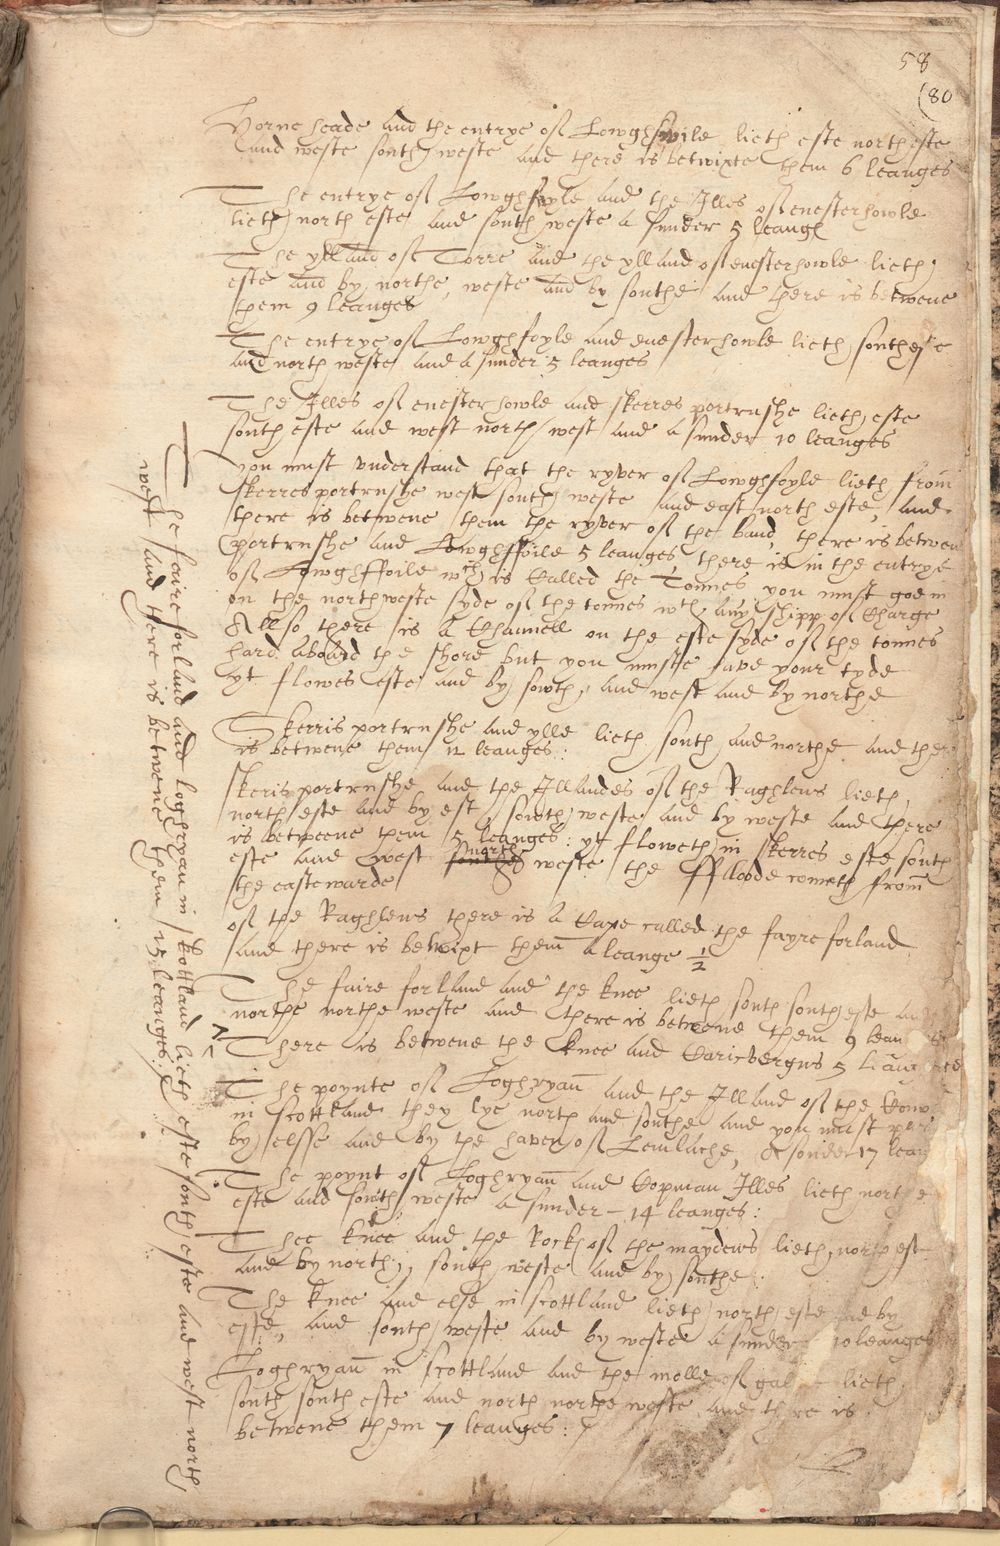 58
(80
Horne heade and the entrye of Lowghfoile lieth este northeste
and weste south weste and there is betwixte them 6 leanges
The entrye of Lowghfoyle and the Illes of enesterhowle
lieth north este and south weste a sunder 5 leaugs
The ylland of Torre and the ylland of enesterhowle lieth
este and by northe, weste and by southe and there is betwene
them 9 leanges
The entrye of Lowghfoyle and enesterhowle lieth southeste
and north weste and a sunder 5 leanges
The Illes of enesterhowle and skerres portrushe lieth este
south este and west north west and a sunder 10 leanges
you must vnderstand that the ryver of Lowghfoyle lieth from
skerresportrushe west south weste and east north este, and
there is betwene them the ryver of the band, there is betwen
portrushe and Lowghffoile 5 leanges, there is in the entrye
of Lowghffoile wch is called the Tonnes you must goe in
on the northweste syde of the tonnes wth any shipp of charge
Allso there is a channell on the este syde of the tonnes
hard aboard the shore but you muste save your tyde
yt flowes este and by sowth, and west and by northe
Skerris portrushe and ylle lieth south and northe and ther
is betwene them 12 leanges:
skeris portrushe and the Illandes of the Raghlens lieth,
north este and by est, south weste and by weste and there
is betweene them 5 leanges: yt floweth in skerres este south
este and west southe north weste the ffloode cometh from
the eastewarde
of the Raghlens there is a Cape called the fayre forland
and there is betwixt them a leange 1/2
The faire forland and the knee lieth south southeste and
northe northe weste and there is betwene them 9 leanges
There is betwene the knee and Caricvergus 5 leanges
The poynte of Loghryan and the Illand of the
in Scottland they lye north and southe and you must
by elsse and by the haven of Lemlache, a sonder 17 lean
The poynt of Loghryan and Copman Illes lieth north
este and south weste a sunder - 14 leanges:
Thee knee and the Rock of the maydens lieth, north est
and by north, south weste and by southe:
The knee and else in scottland lieth north este and by
este, and south weste and by weste a sunder 10 leanges
Loghryan in scottland and the molle of gal lieth
south south este and north northe weste and there is
betwene them 7 leanges:
The faire forland and loghryan in skottland lieth este south este and west north
west and there is betwene them 15 leanges: